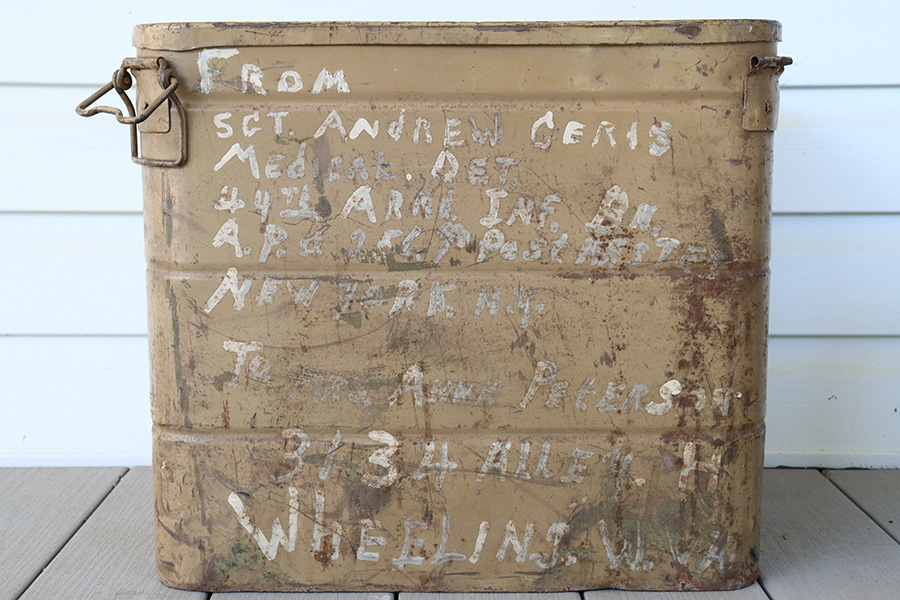 FROM
SGT. ANDREW GERIS
MEDICAL. DET.
44TH ARM. INF. BN.
A.P.O. 256 % POSTMAST=
NEW YORK N.Y.
TO MRS ANNA PETERSON
3134 ALLEY. H
WHEELING. W. VA.